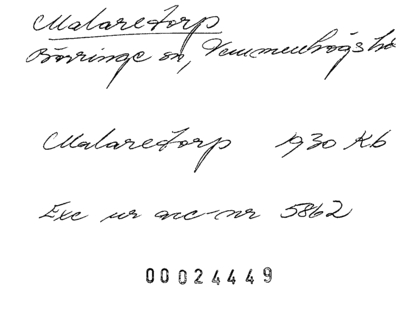 Malaretorp
Börringe sn, Vemmenhögs hd
Malaretorp 1930 Kb
Exc ur acc-nr 5862
00024449